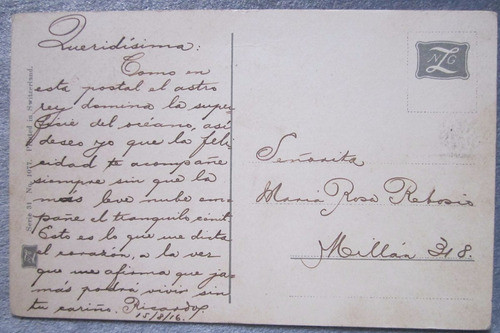 Queridísima:
Como en
esta postal el astro
rey domina la super
ficie del océano, así
deseo yo que la feli
cidad te acompañe
siempre sin que la
más leve nube em
pañe el tranquilo
Esto es lo que me dicta
el corazón, a la vez
que me afirma que ja
más podrá vivir sin
tu cariño. Ricardo
15/8/16.
Serie 31 No. 1077. Printed in Switzerland.
NZG
Señorita
María Rosa Rebosio
Millán 318.